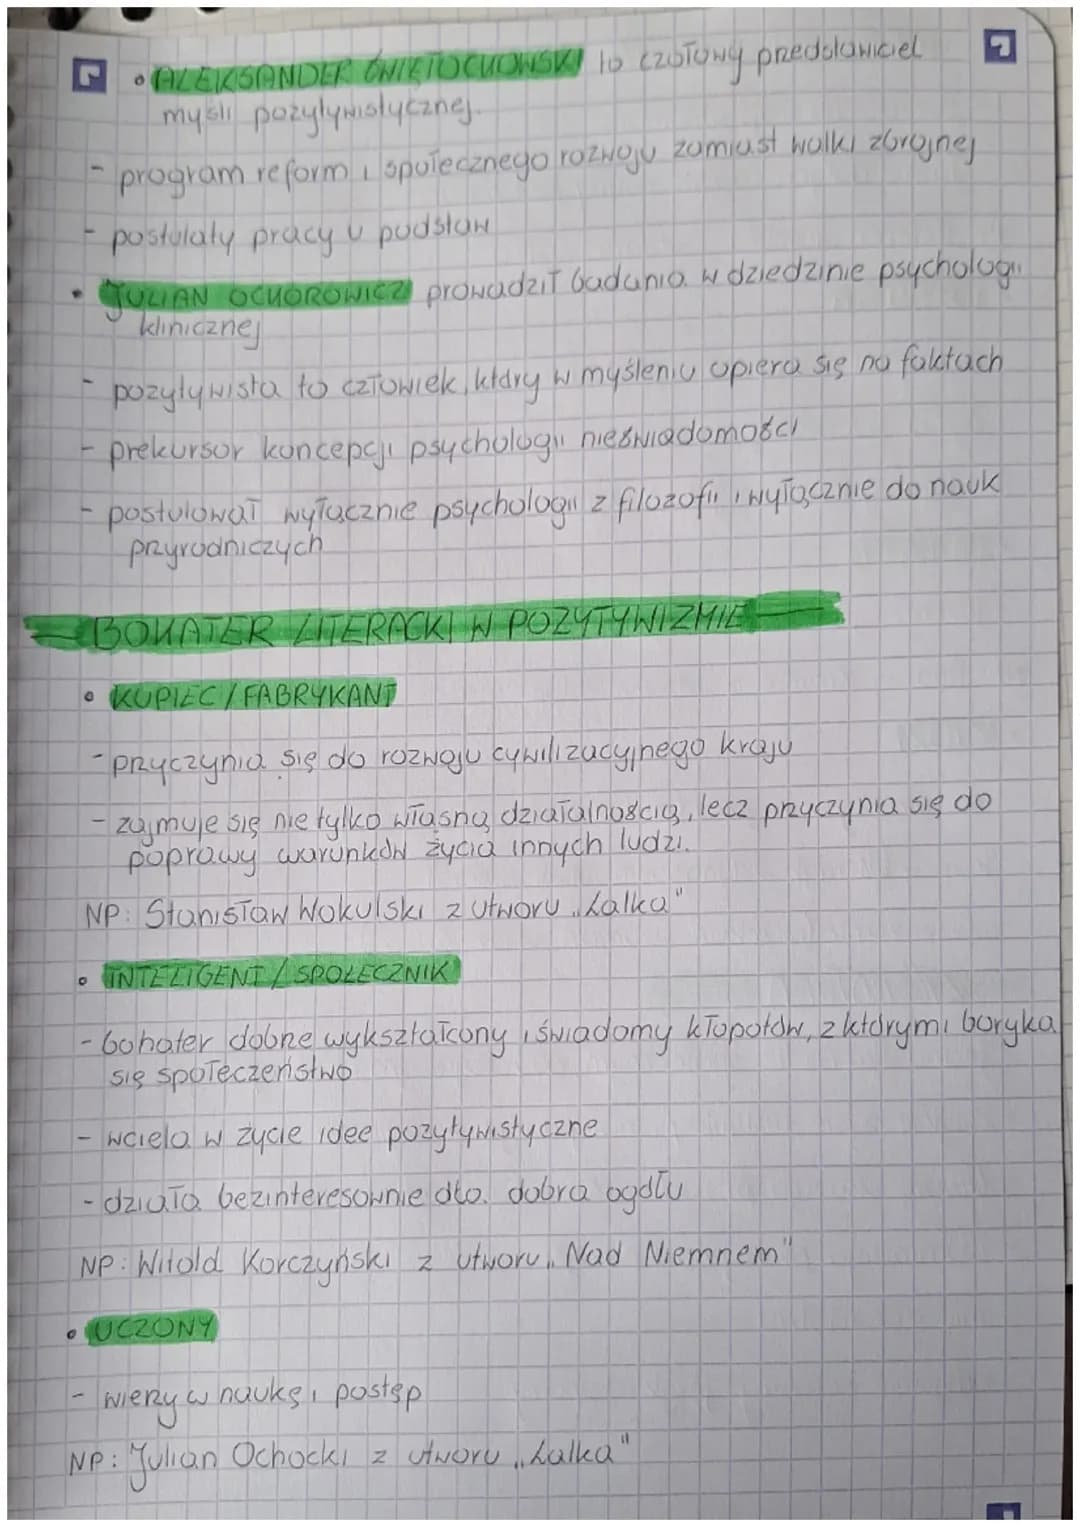 • ALEKSANDER ŚWIĘTOCHOWSKI to czołowy przedstawiciel
myśli pozytywistycznej.
- program reform i społecznego rozwoju zamiast walki zbrojnej
- postulaty pracy u podstaw
• JULIAN OCHOROWICZ prowadził badania w dziedzinie psychologii
klinicznej
- pozytywista to człowiek, który w myśleniu opiera się na faktach
- prekursor koncepcji psychologii nieświadomości
- postulował wyłącznie psychologii z filozofii i wyłącznie do nauk
przyrodniczych
BOHATER LITERACKI W POZYTYWIZMIE
• KUPIEC / FABRYKANT
- przyczynia się do rozwoju cywilizacyjnego kraju
- zajmuje się nie tylko własną działalnością, lecz przyczynia się do
poprawy warunków życia innych ludzi.
NP: Stanisław Wokulski z utworu „Lalka"
• INTELIGENT / SPOŁECZNIK
- bohater dobrze wykształcony i świadomy kłopotów, z którymi boryka
się społeczeństwo
- wciela w życie idee pozytywistyczne
- działa bezinteresownie dla dobra ogółu
NP: Witold Korczyński z utworu „Nad Niemnem"
• UCZONY
- wierzy w naukę i postęp
NP: Julian Ochocki z utworu „Lalka"